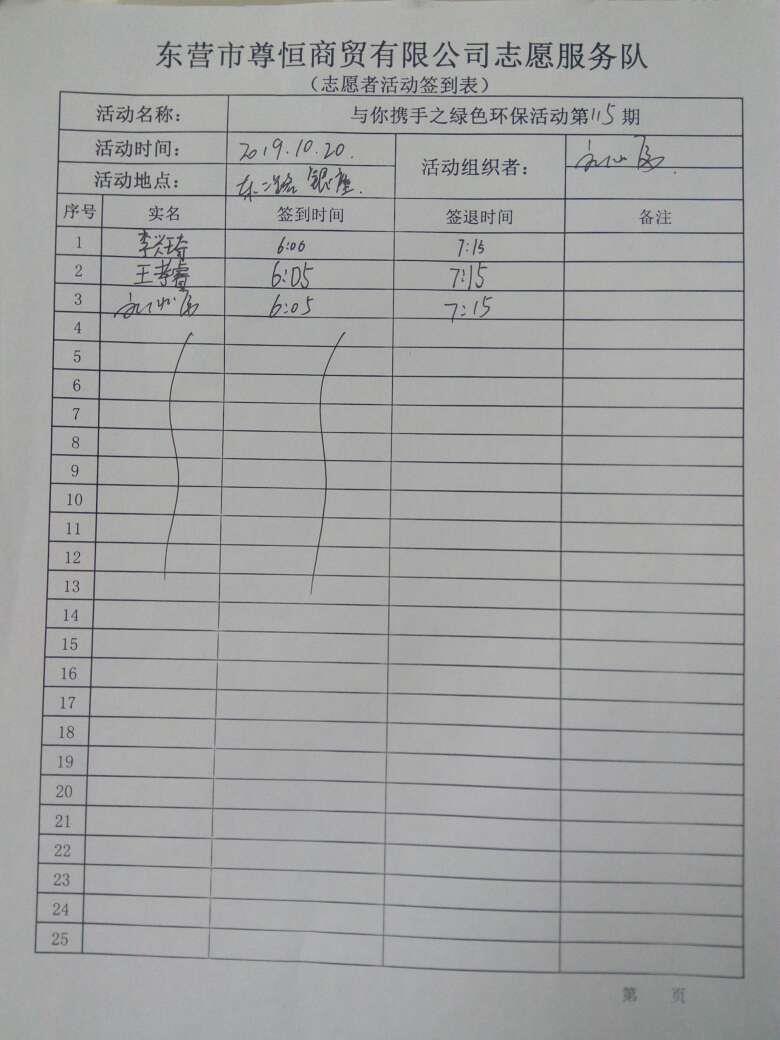 东营市尊恒商贸有限公司志愿服务队
（志愿者活动签到表）
活动名称： 与你携手之绿色环保活动第115期
活动时间： 2019.10.20. 活动组织者：
活动地点： 东二路银座.
序号 实名 签到时间 签退时间 备注
1 李兴琦 6:00 7:15
2 王孝睿 6:05 7:15
3 6:05 7:15
4
5
6
7
8
9
10
11
12
13
14
15
16
17
18
19
20
21
22
23
24
25
第 页